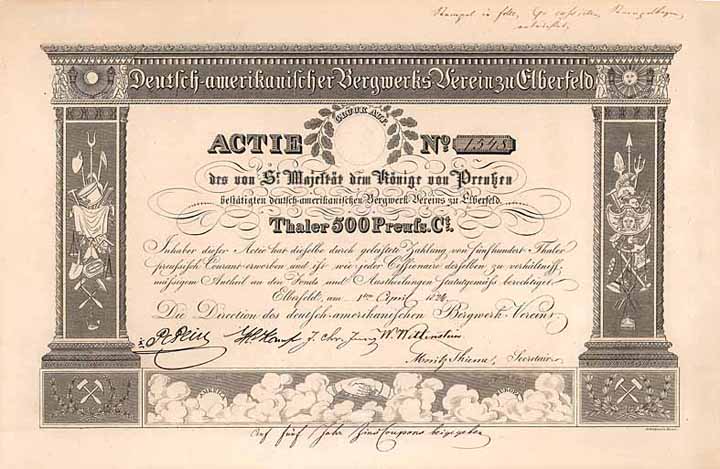 Stempel in
Deutsch-amerikanischer Bergwerks Verein zu Elberfeld
GLÜCK AUF
ACTIE No. 1545
des von Sr. Majestät dem Könige von Preußen
bestätigten deutsch-amerikanischen Bergwerk-Vereins zu Elberfeld.
Thaler 500 Preuſs. Ct.
Inhaber dieser Actie hat dieselbe durch geleistete Zahlung von fünfhundert Thaler
preussisch Courant erworben und ist wie jeder Cessionair derselben zu verhältniſs-
mäſsigem Antheil an den Fonds und Austheilungen Statutgemäſs berechtiget
Elberfeld, am 1ten April 1824
Die Direction des deutsch-amerikanischen Bergwerk-Vereins
J. Chr. Jung W. Wittenstein
Moritz Thieme, Secretair
AMERICA EUROPA
Auf fünf Jahr Zinscoupons beigegeben